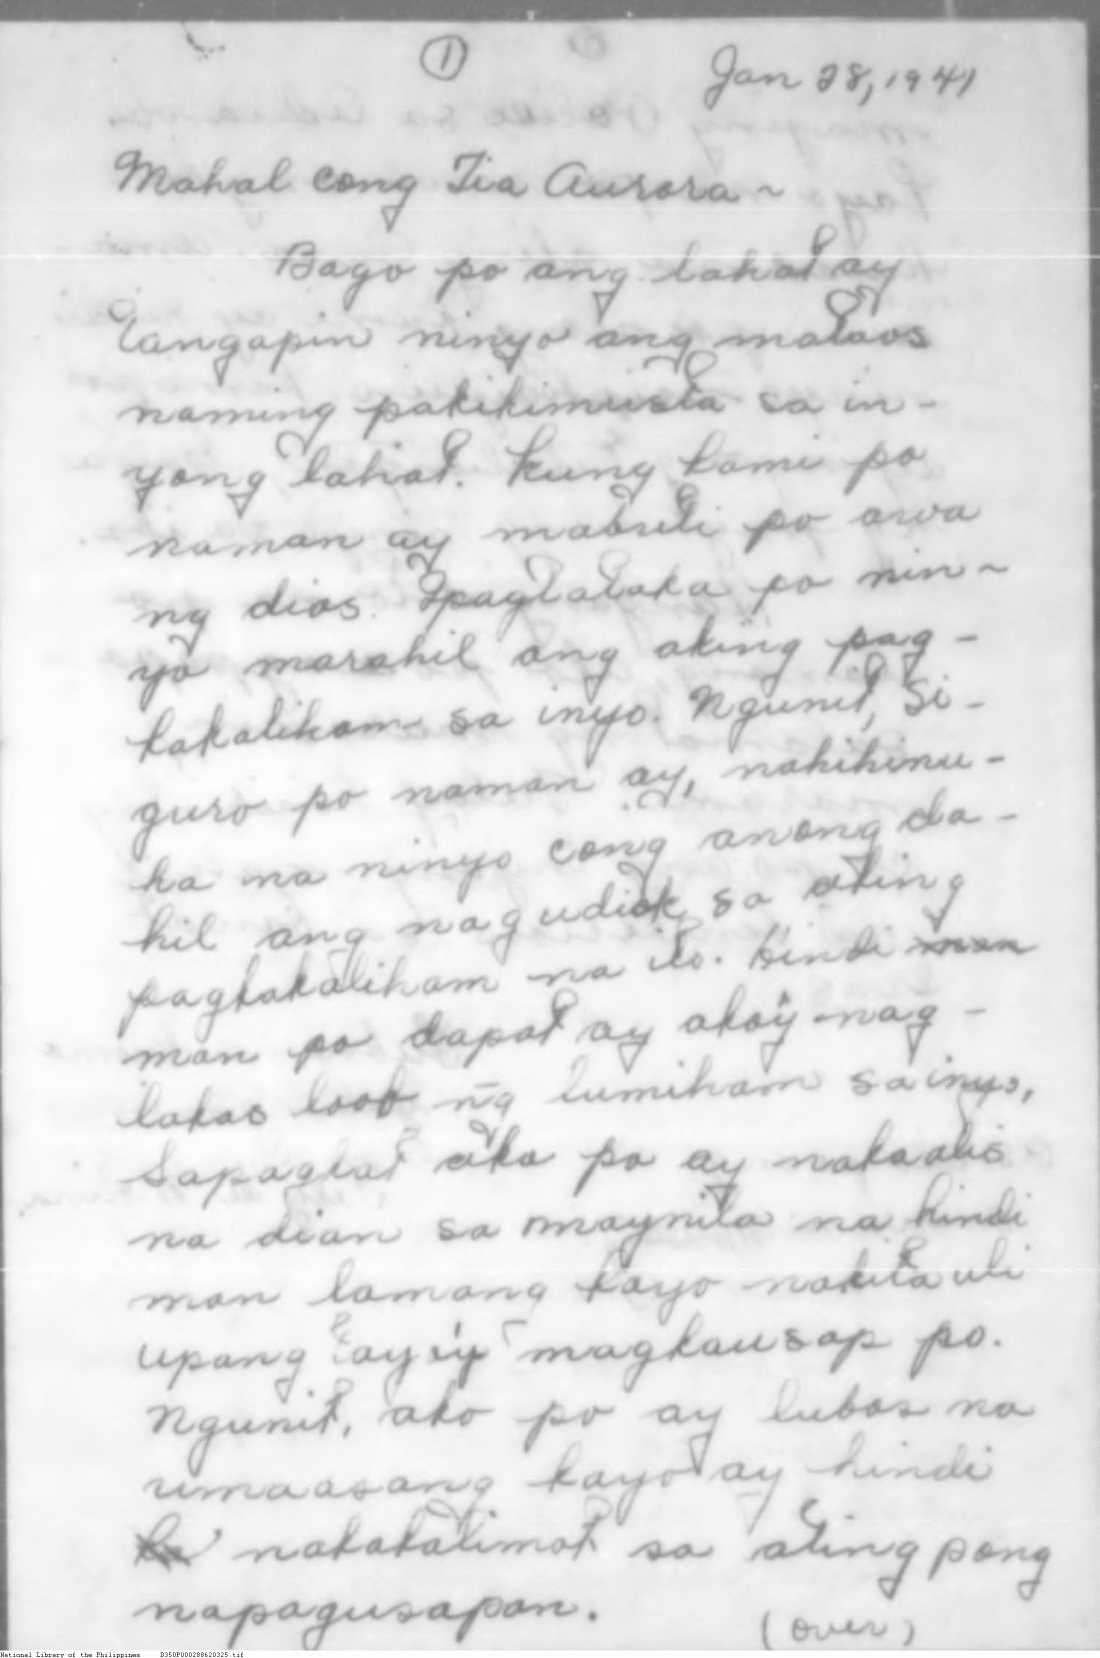 ①
Jan 28, 1941
Mahal cong Tia Aurora ~
Bago po ang lahat ay
tangapin ninyo ang mataos
naming pakikimusta sa in-
yong lahat. Kung kami po
naman ay mabuti po awa
ng dios. Ipagtataka po nin~
yo marahil ang aking pag-
kakaliham sa inyo. Ngunit, Si-
guro po naman ay, nahihinu-
ha na ninyo cong anong da-
hil ang nagudiok sa ating
pagkakaliham na ito. Hindi man
man po dapat ay ako'y nag-
lakas loob n̄g lumiham sa inyo,
Sapagkat ako po ay nakaalis
na dian sa maynila na hindi
man lamang kayo nakita uli
upang tayo'y magkausap po.
Ngunit, ako po ay lubos na
umaasang kayo ay hindi
nakakalimot sa ating pong
napagusapan.
(over)
National Library of the Philippines D350P000288620325.tif